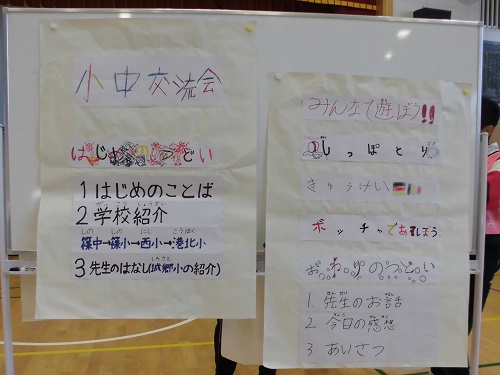 小中交流会
はじめのつどい
1 はじめのことば
2 学校紹介
しょうかい
しの しの にし こうほく
篠中→篠小→西小→港北小
しろさと
3 先生のはなし(城郷小の紹介)
みんなで遊ぼう!!
しっぽとり
きゅうけい
ボッチャであそぼう
おわりのつどい
1. 先生のお話
2. 今日の感想
3 あいさつ